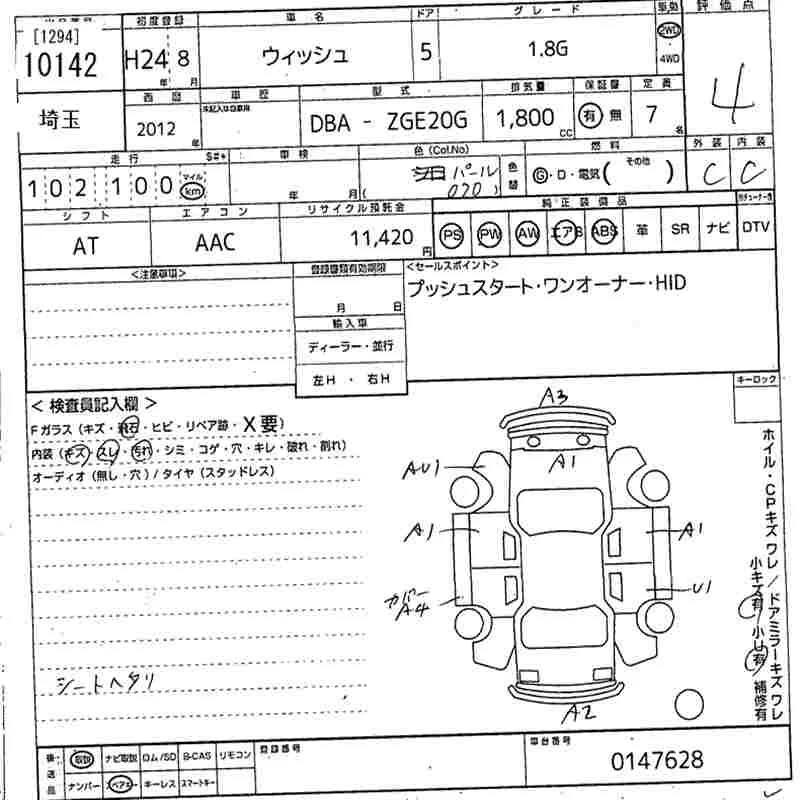 [1294]
10142
初度登録
H24 8
年 月
車名
ウィッシュ
ドア
5
グレード
1.8G
2WD
4WD
評価点
4
埼玉
西暦
2012
年
車歴
未記入は自家用
型式
DBA - ZGE20G
排気量
1,800
CC
保証書
有 無
定員
7
名
走行
102,100
マイル
km
車検
年 月
色 (Col.No)
パール
( 070 )
色替
燃料
G・D・電気 (その他 )
外装
C
内装
C
シフト
AT
エアコン
AAC
リサイクル預託金
11,420
円
純正装備品
PS PW AW エアB ABS 革 SR ナビ
DTV
<注意事項>
登録書類有効期限
月 日
輸入車
ディーラー・並行
左H ・ 右H
<セールスポイント>
プッシュスタート・ワンオーナー・HID
キーロック
< 検査員記入欄 >
Fガラス (キズ・飛石・ヒビ・リペア跡・X要)
内装 (キズ・スレ・汚れ・シミ・コゲ・穴・キレ・破れ・割れ)
オーディオ (無し・穴) / タイヤ (スタッドレス)
シートヘタリ
A3
A1
AU1
A1
A1
カバー
A4
U1
A2
ホイル・CPキズワレ/ドアミラーキズワレ
小キズ有 小U有 補修有
後送品
取説 ナビ取説 ロム/SD B-CAS リモコン
ナンバー スペアキー キーレス スマートキー
登録番号
車台番号
0147628